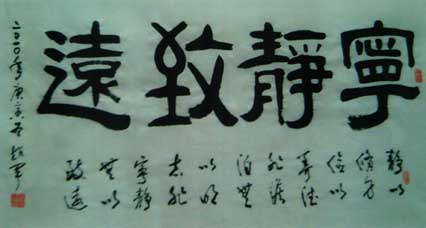 寧靜致遠
靜以
修身
儉以
養德
非澹
泊無
以明
志非
寧靜
無以
致遠
二〇一〇年庚寅